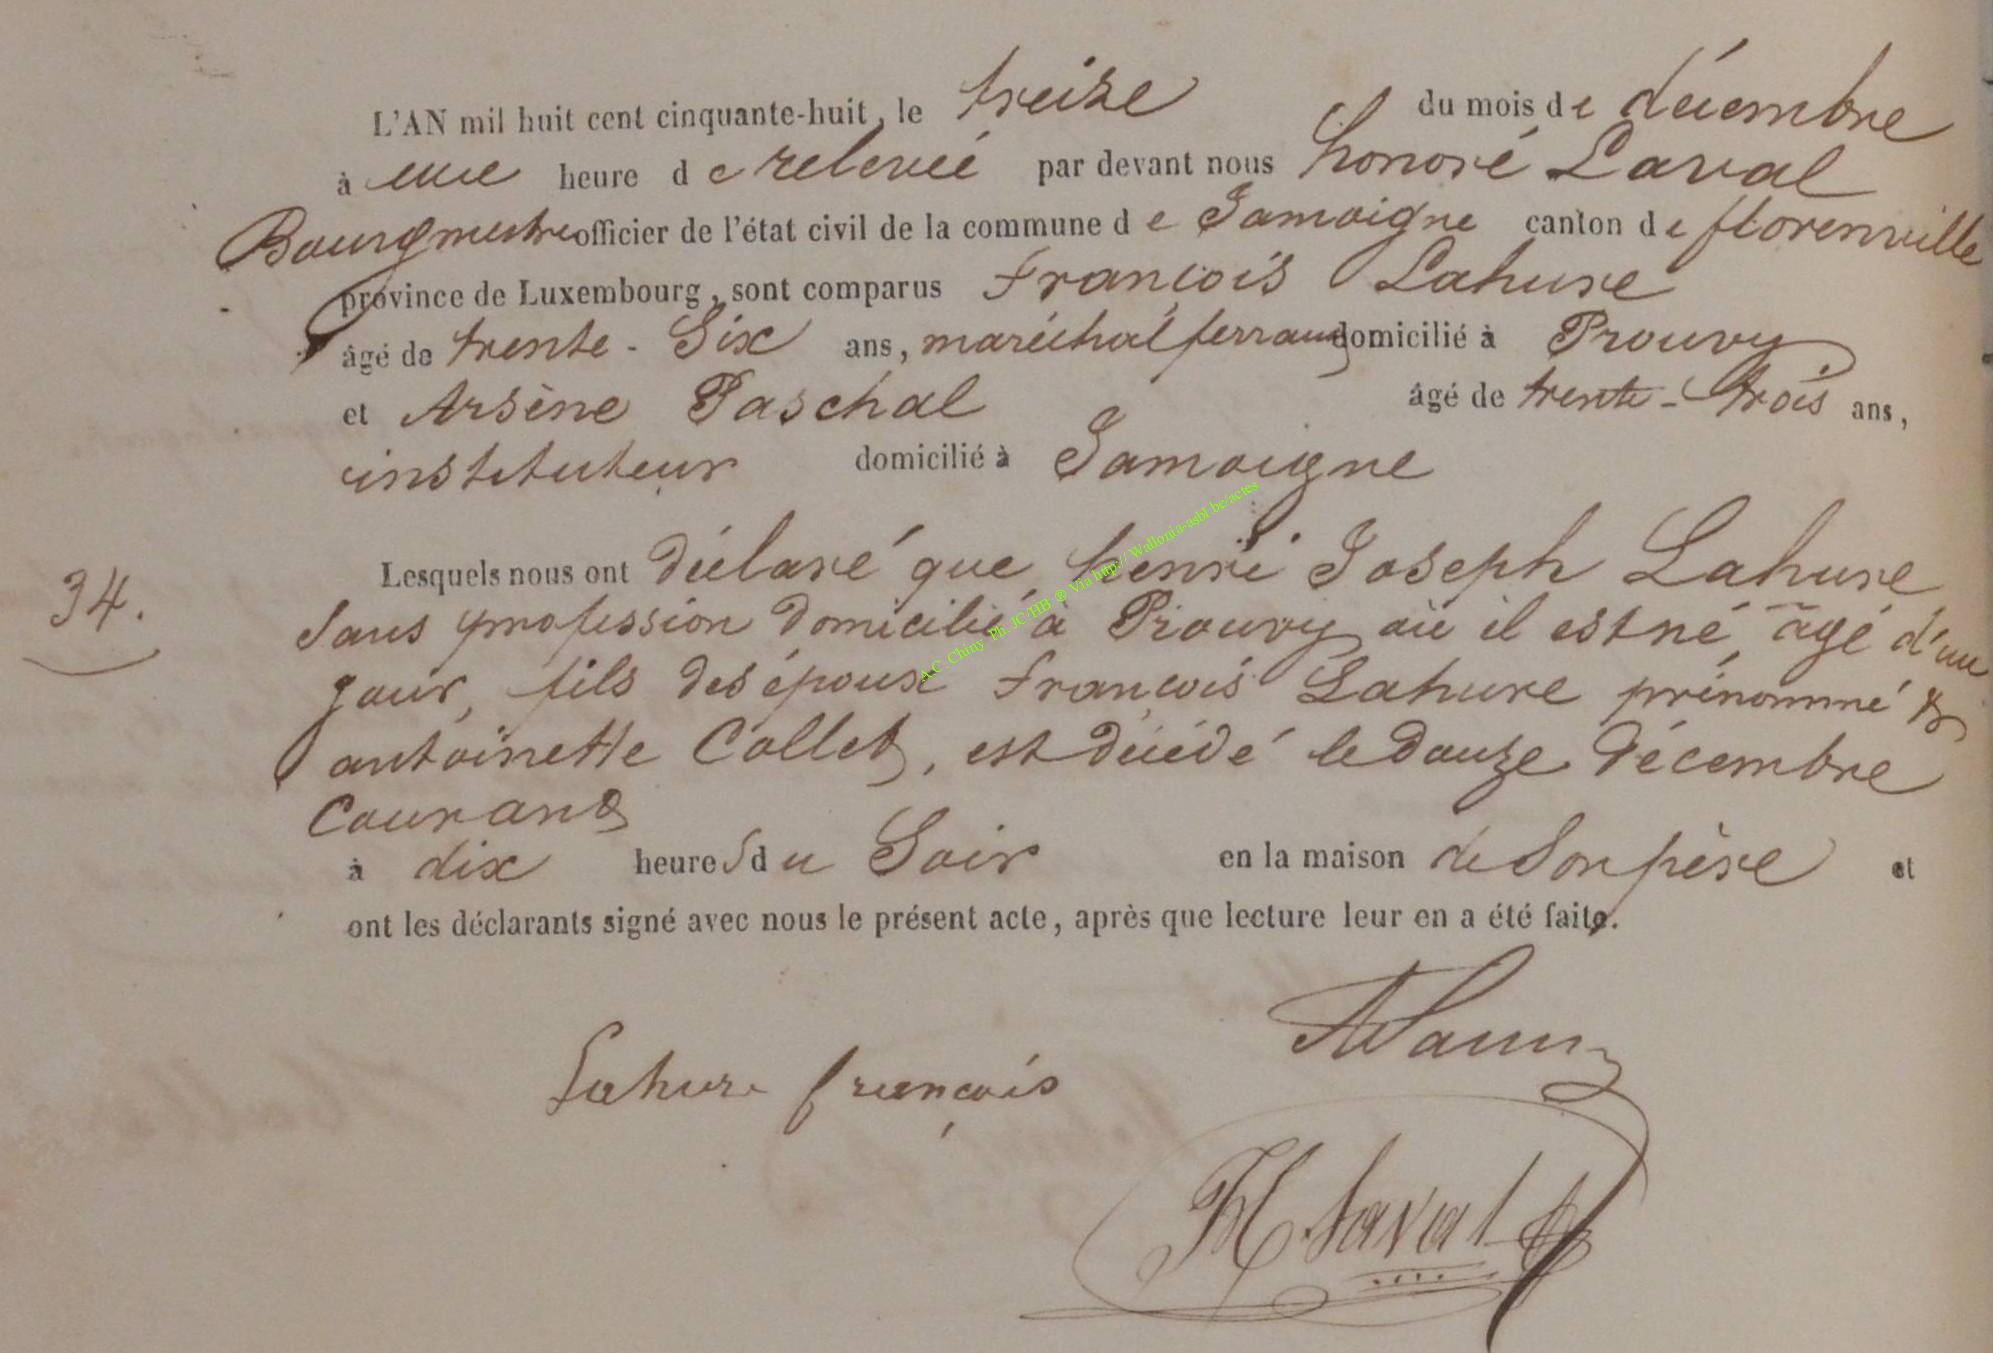 L'AN mil huit cent cinquante-huit, le treize du mois de décembre
à une heure de relevée par devant nous honoré Laval
Bourgmestre officier de l'état civil de la commune de Jamoigne canton de florenville
province de Luxembourg, sont comparus françois Lahure
âgé de trente-Six ans, maréchal ferrant domicilié à Prouvy
et Arsène Paschal âgé de trente-trois ans,
instituteur domicilié à Jamoigne
Lesquels nous ont déclaré que henri Joseph Lahure
34.
Sans profession domicilié à Prouvy où il est né, âgé d'un
jour, fils des époux françois Lahure prénommé &
antoinette Collet, est décédé le douze décembre
Courant
à dix heures du Soir en la maison de Son père et
ont les déclarants signé avec nous le présent acte, après que lecture leur en a été faite.
Lahure françois
H. Laval
A.C. Chiny Ph. JC/HB ® Via http:// Wallonia-asbl.be/actes